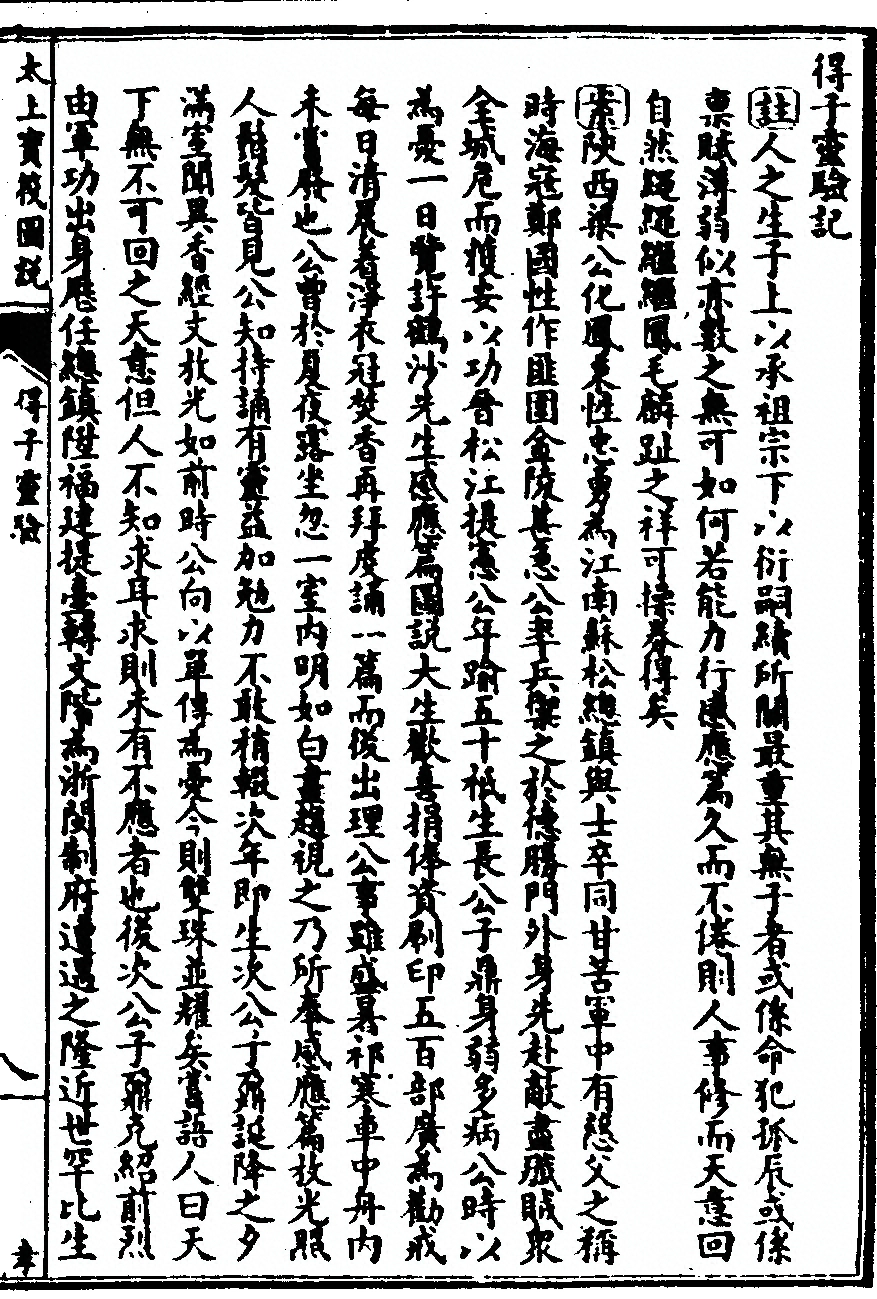 得子靈驗記
註人之生子上以承祖宗下以衍嗣續所關最重其無子者或係命犯孤辰或係
禀賦薄弱似亦數之無可如何若能力行感應篇久而不倦則人事修而天意回
自然繩繩繼繼鳳毛麟趾之祥可操券得矣
案陝西梁公化鳳秉性忠勇為江南蘇松總鎮與士卒同甘苦軍中有慈父之稱
時海寇鄭國性作匪圍金陵甚急公率兵禦之於德勝門外身先赴敵盡殲賊眾
全城危而獲安以功晉松江提憲公年踰五十祗生長公子鼎身弱多病公時以
為憂一日覽許鶴沙先生感應篇圖說大生歡喜捐俸資刷印五百部廣為勸戒
每日清晨着淨衣冠焚香再拜虔誦一篇而後出理公事雖盛暑祁寒車中舟内
未嘗廢也公曾於夏夜露坐忽一室内明如白晝趨視之乃所奉感應篇放光照
人鬚髮皆見公知持誦有靈益加勉力不敢稍輟次年即生次公子鼐誕降之夕
滿室聞異香經文放光如前時公向以單傳為憂今則雙珠並耀矣嘗語人曰天
下無不可回之天意但人不知求耳求則未有不應者也後次公子鼐克紹前烈
由軍功出身歷任總鎮陞福建提臺轉文階為浙閩制府遭遇之隆近世罕比生
太上寶筏圖説 得子靈驗 八 孝